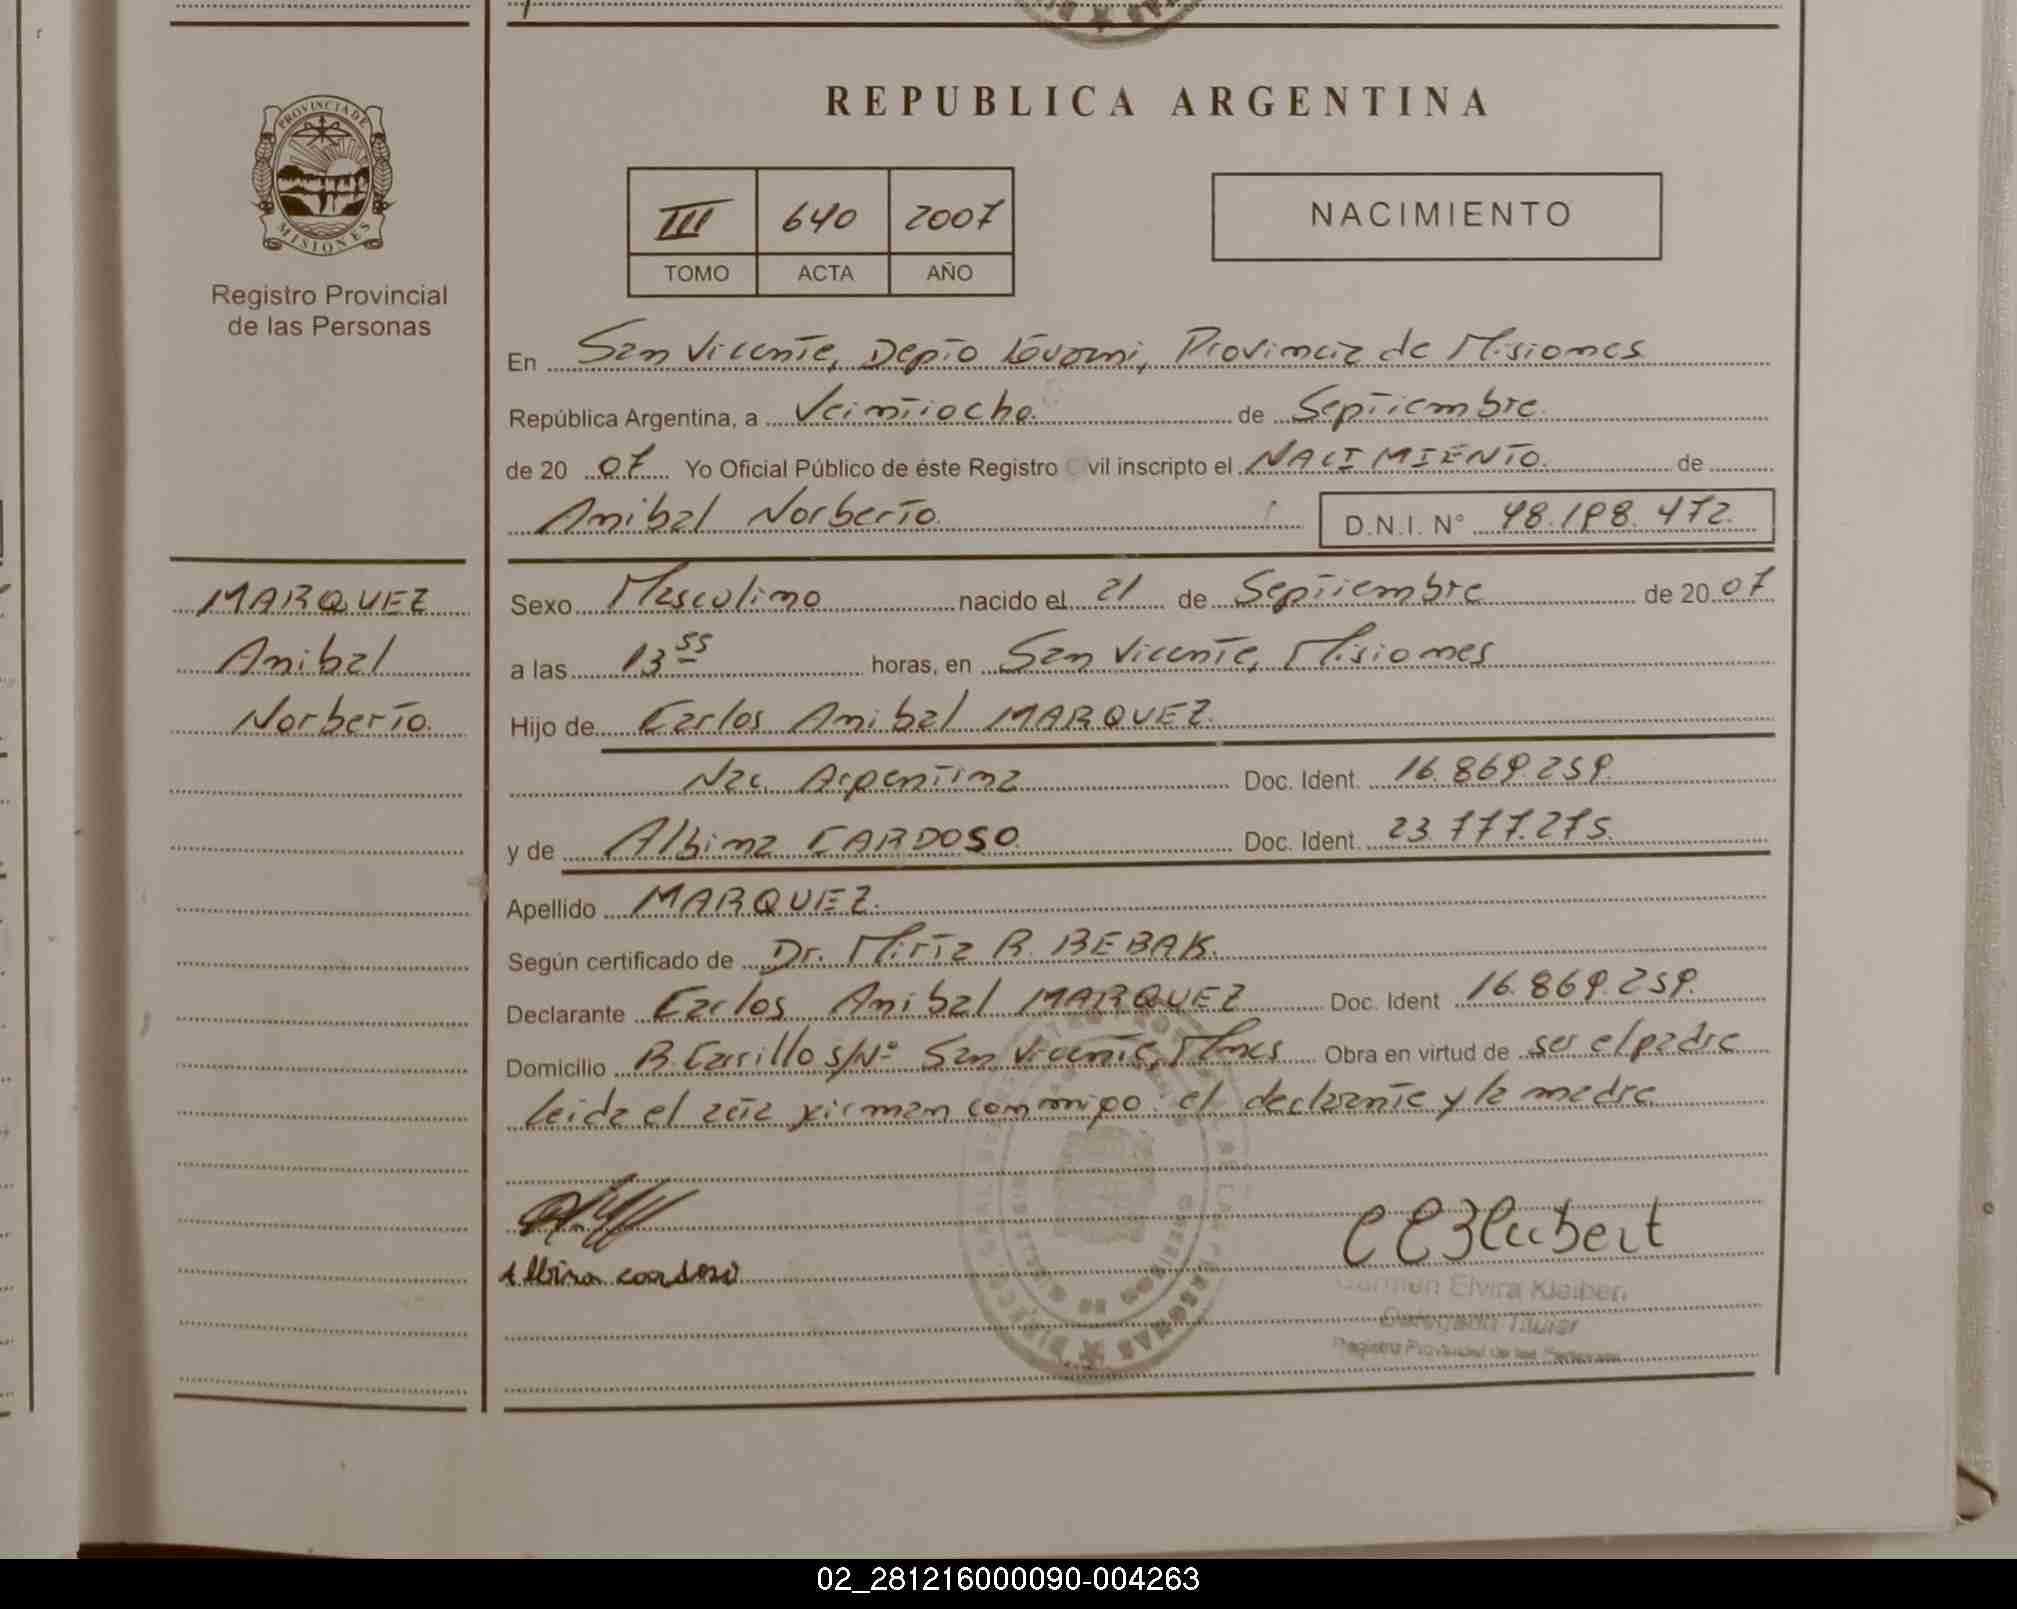 REPUBLICA ARGENTINA
PROVINCIA DE
MISIONES
Registro Provincial
de las Personas
III 640 2007
TOMO ACTA AÑO
NACIMIENTO
En San Vicente, Depto Provincia de Misiones
República Argentina, a Veintiocho de Septiembre
de 20 07 Yo Oficial Público de éste Registro vil inscripto el NACIMIENTO de
Anibal Norberto D.N.I. Nº 48.198.472
MARQUEZ
Anibal
Norberto.
Sexo Masculino nacido el 21 de Septiembre de 20 07
a las 13 55 horas, en San Vicente, Misiones
Hijo de Carlos Anibal MARQUEZ.
Nac. Argentina Doc. Ident. 16.869.259.
y de Albina CARDOSO Doc. Ident. 23.777.275.
Apellido MARQUEZ.
Según certificado de Dr. Mirta R. BEBAK.
Declarante Carlos Anibal MARQUEZ Doc. Ident 16.869.259.
Domicilio R. Carrillo s/Nº San Vicente, Mnes Obra en virtud de ser el padre
leida el acta firman conmigo: el declarante y la madre
Albina cardoso
Carmen Elvira Kleiber
Delegada Titular
Registro Provincial de las Personas
02_281216000090-004263